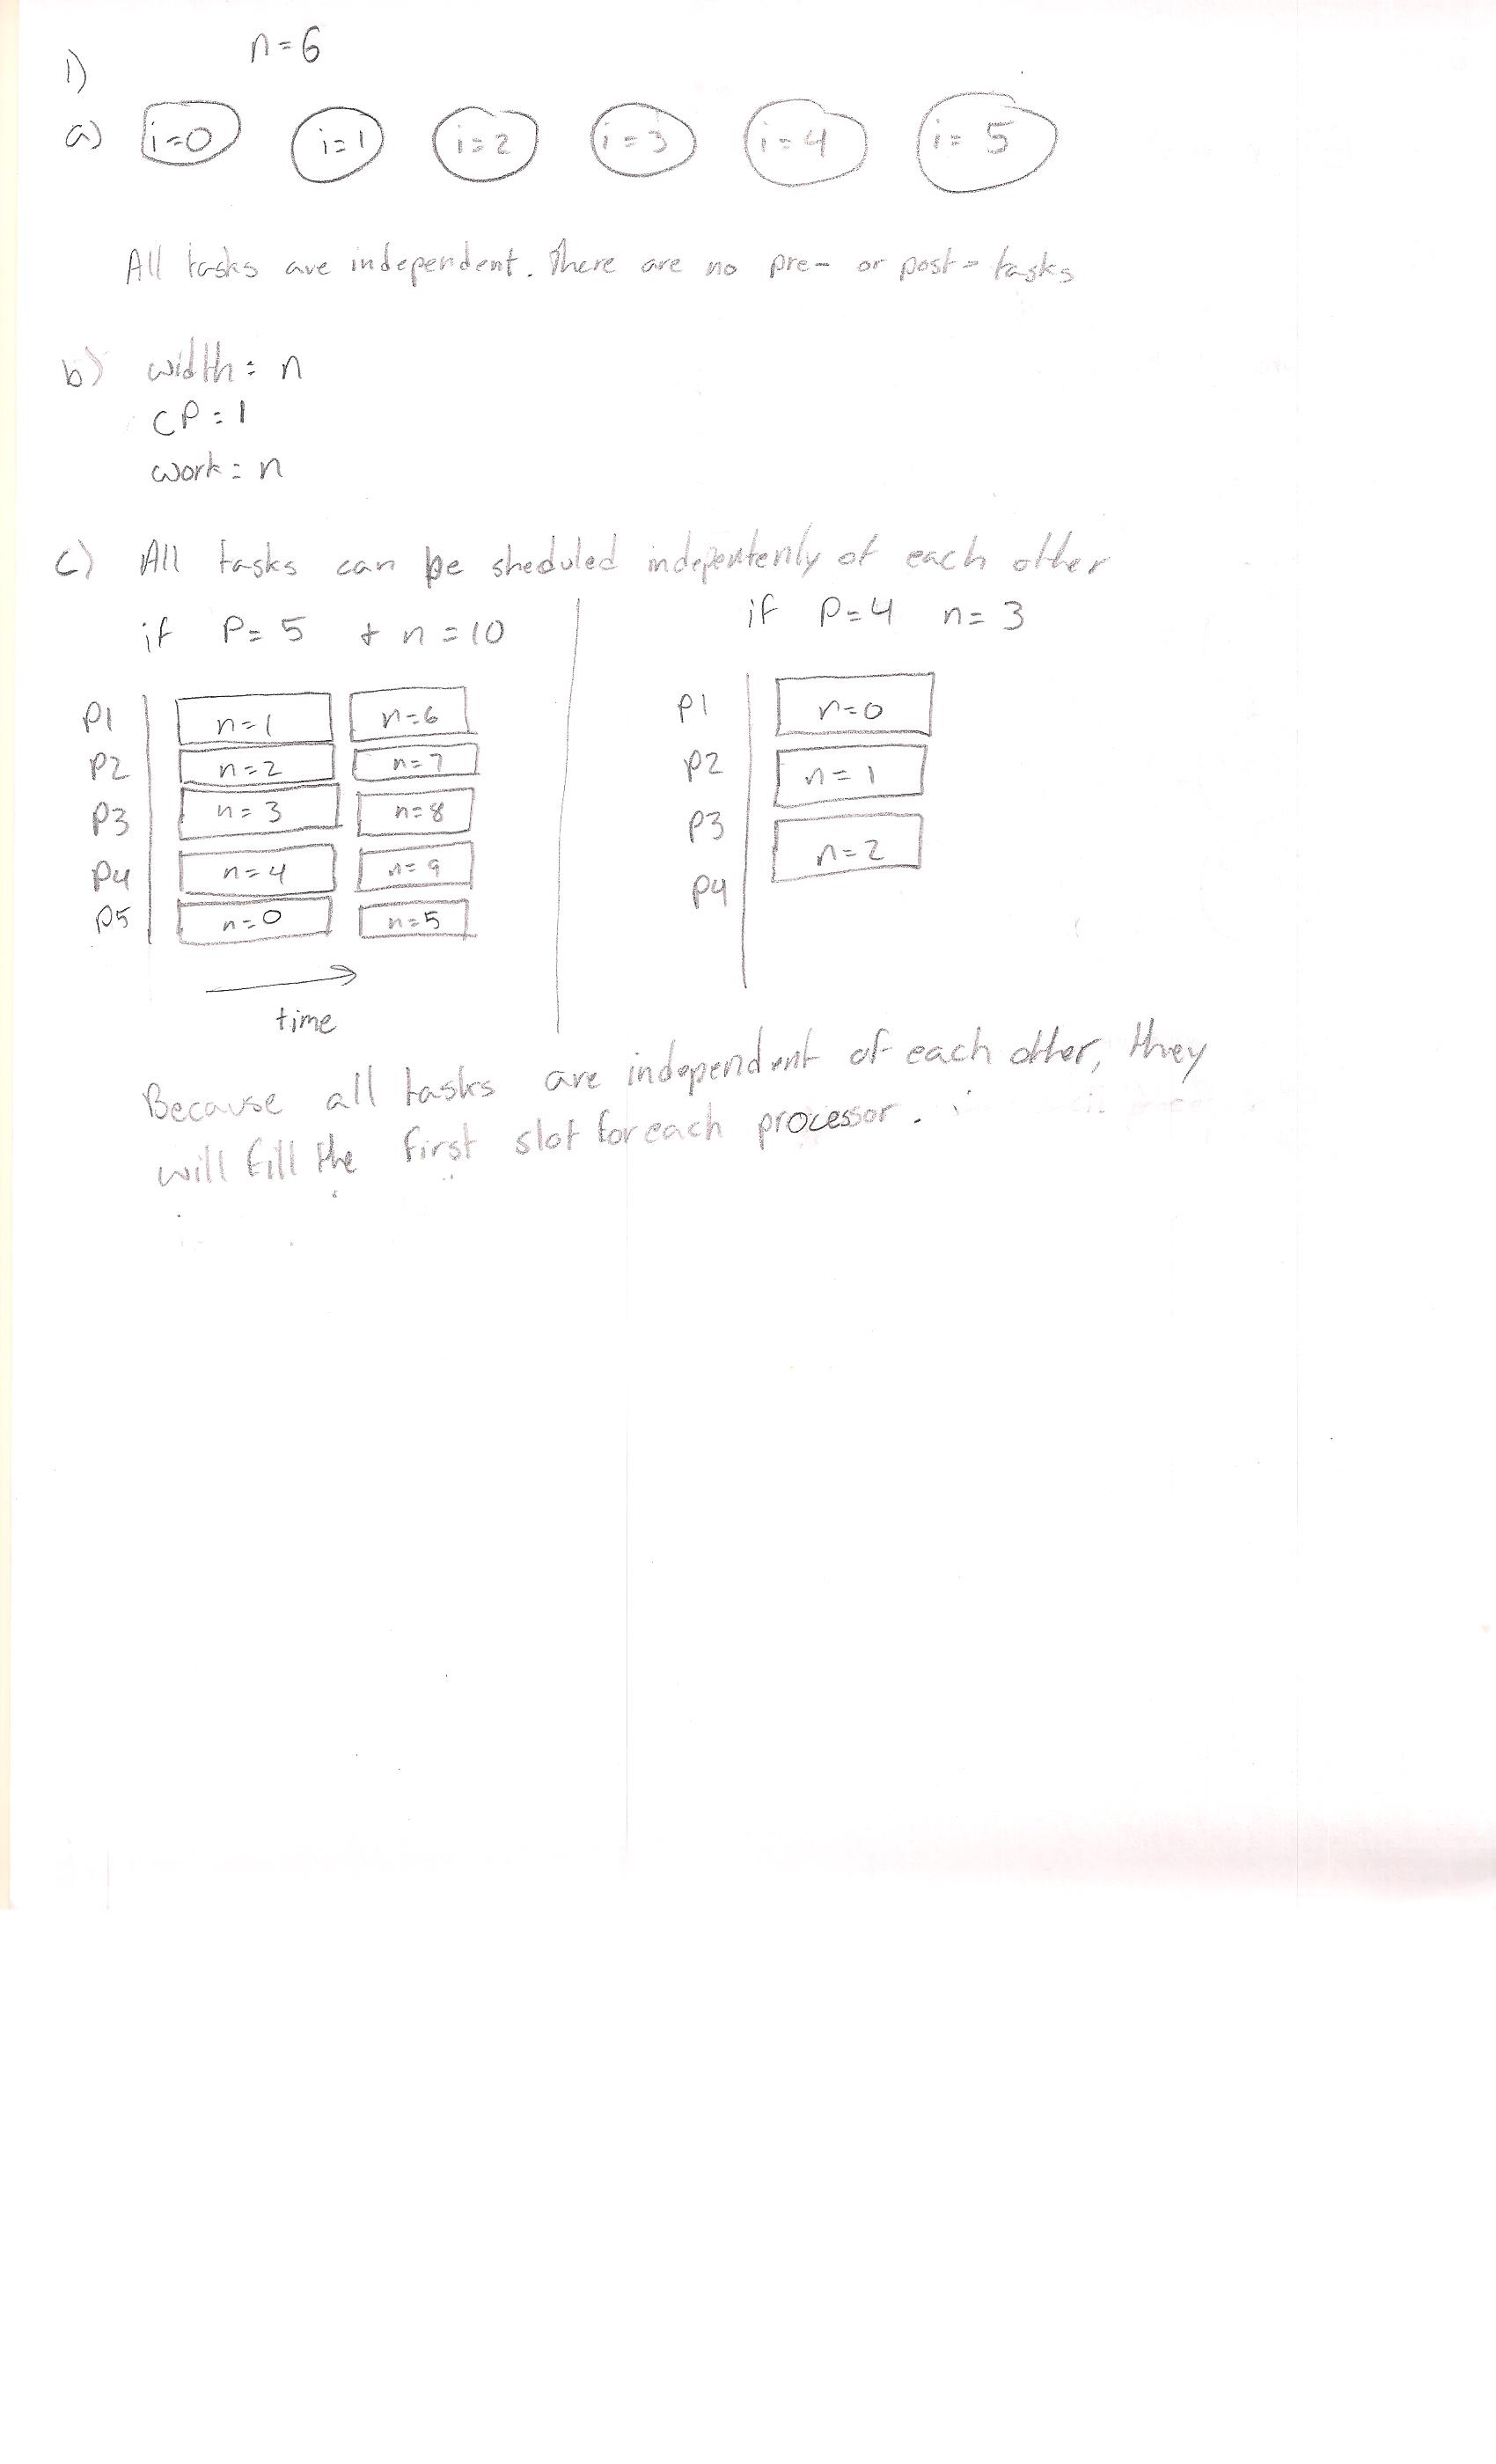 n=6
1)
a) i=0 i=1 i=2 i=3 i=4 i=5
All tasks are independent. There are no pre- or post- tasks
b) width = n
CP = 1
work = n
c) All tasks can be sheduled indepentenly of each other
if P=5 + n=10
if P=4 n=3
P1 n=1 n=6
P2 n=2 n=7
P3 n=3 n=8
P4 n=4 n=9
P5 n=0 n=5
time
P1 n=0
P2 n=1
P3 n=2
P4
Because all tasks are independent of each other, they
will fill the first slot for each processor.